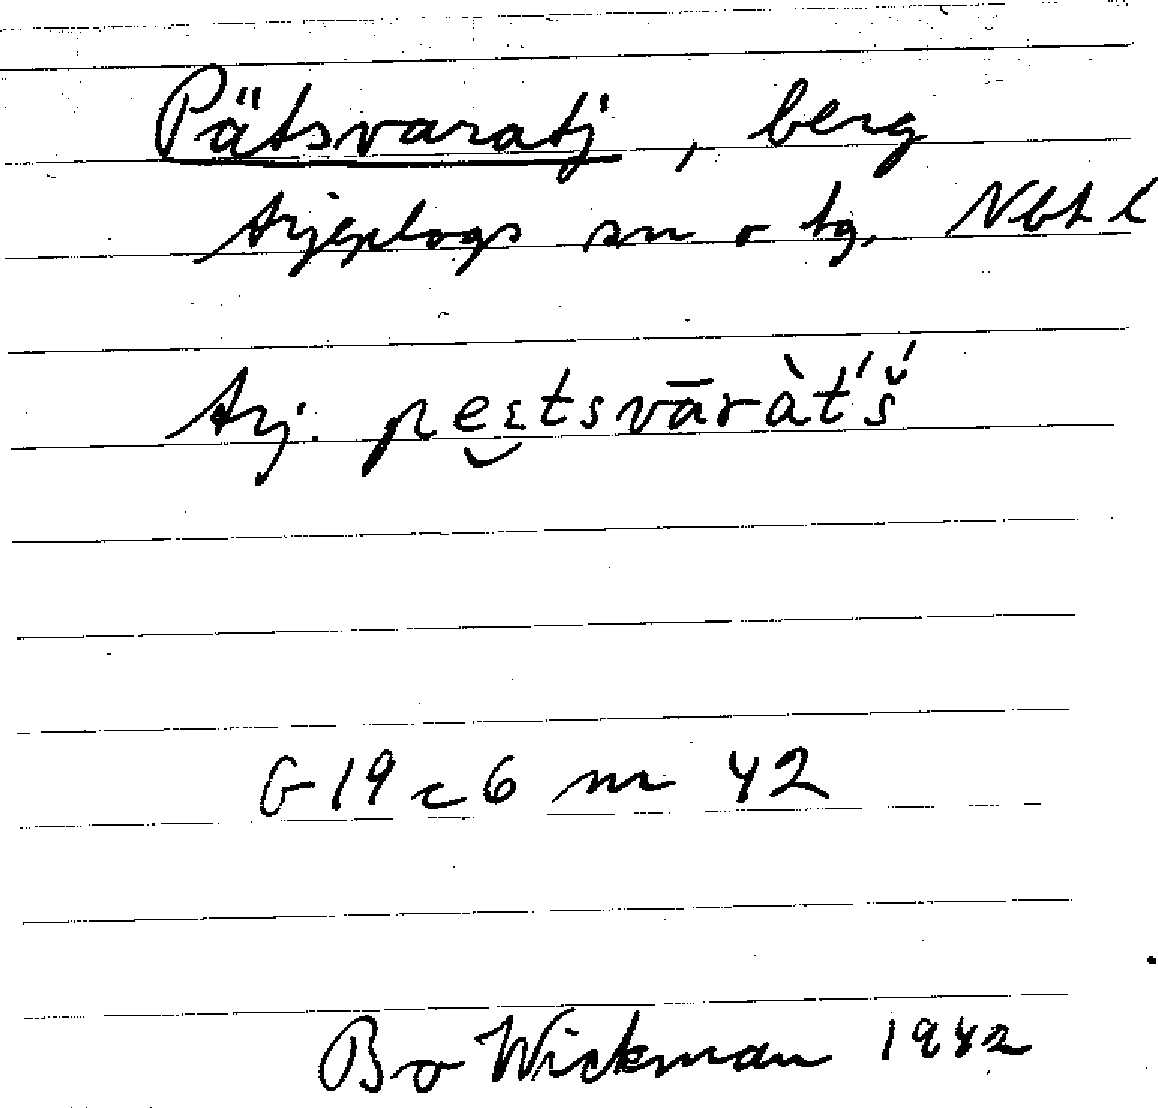 Pätsvaratj, berg
Arjeplogs sn o tg. Nbt l
Arj. pe͜ɛtsvāràt́š́
G 19 c 6 nr 42
Bo Wickman 1942